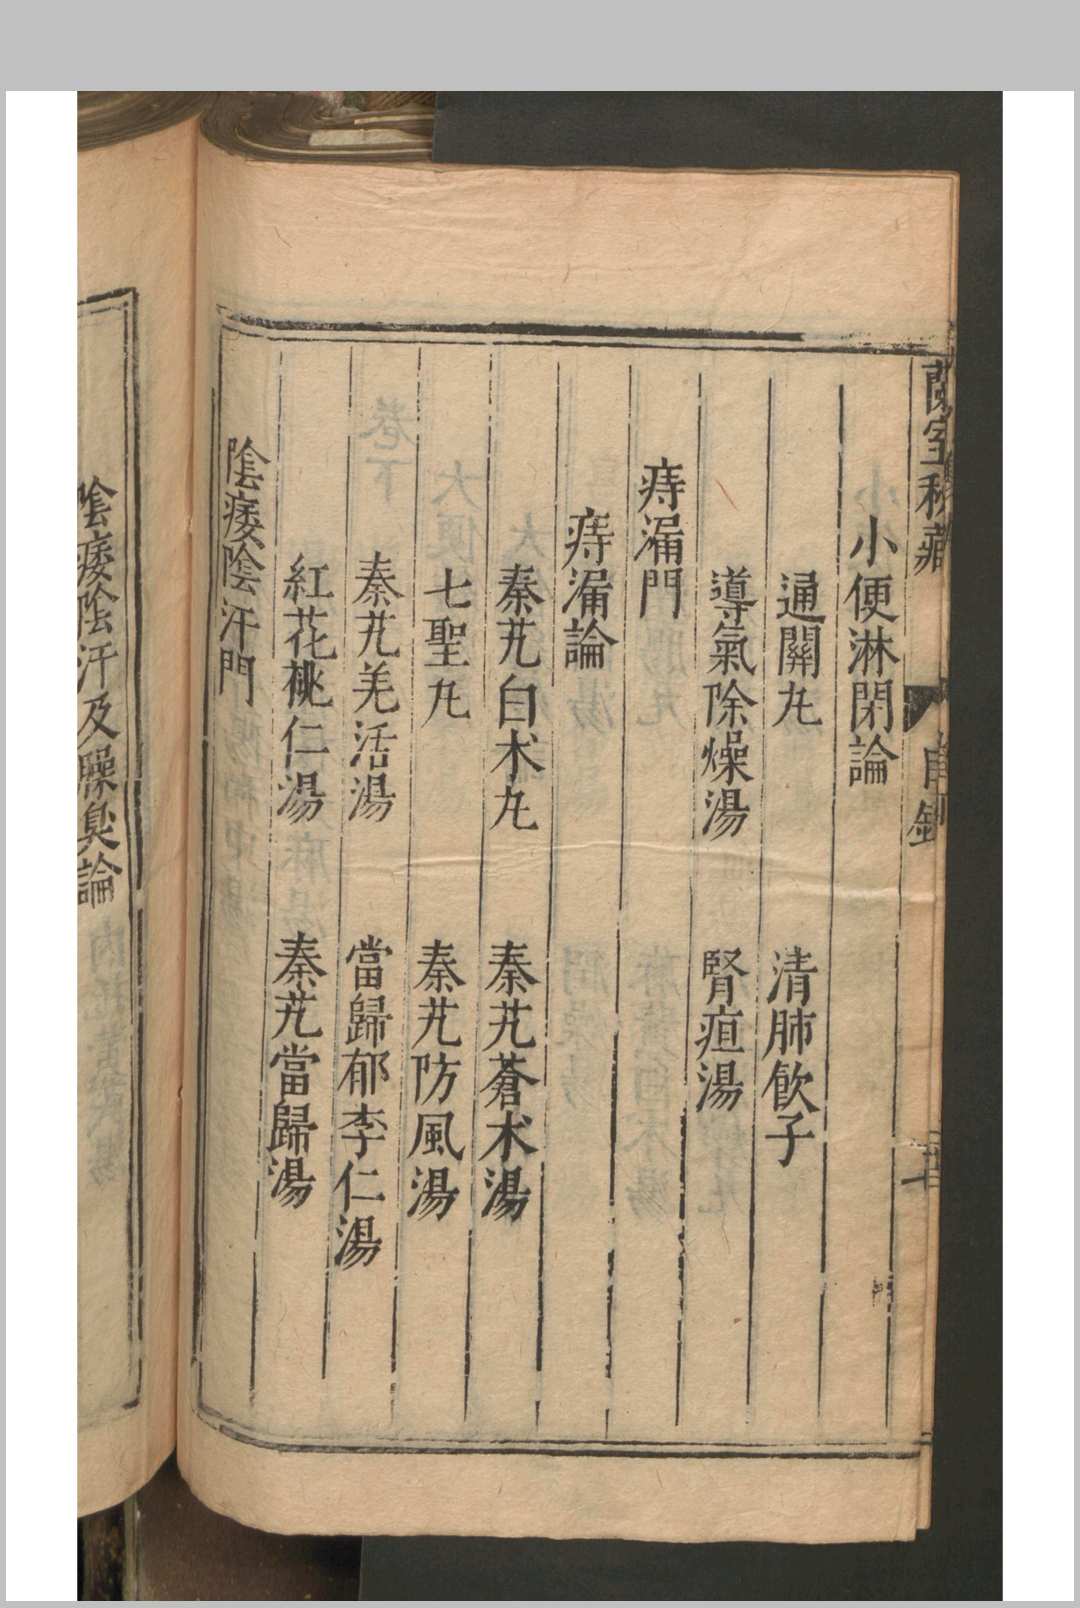 蘭室秘藏 目錄
小便淋閉論
通關𠃵 清肺飲子
導氣除燥湯 腎疸湯
痔漏門
痔漏論
秦艽白术𠃵 秦艽蒼术湯
七聖𠃵 秦艽防風湯
秦艽羌活湯 當歸郁李仁湯
紅花桃仁湯 秦艽當歸湯
陰痿陰汗門
陰痿陰汗及臊臭論